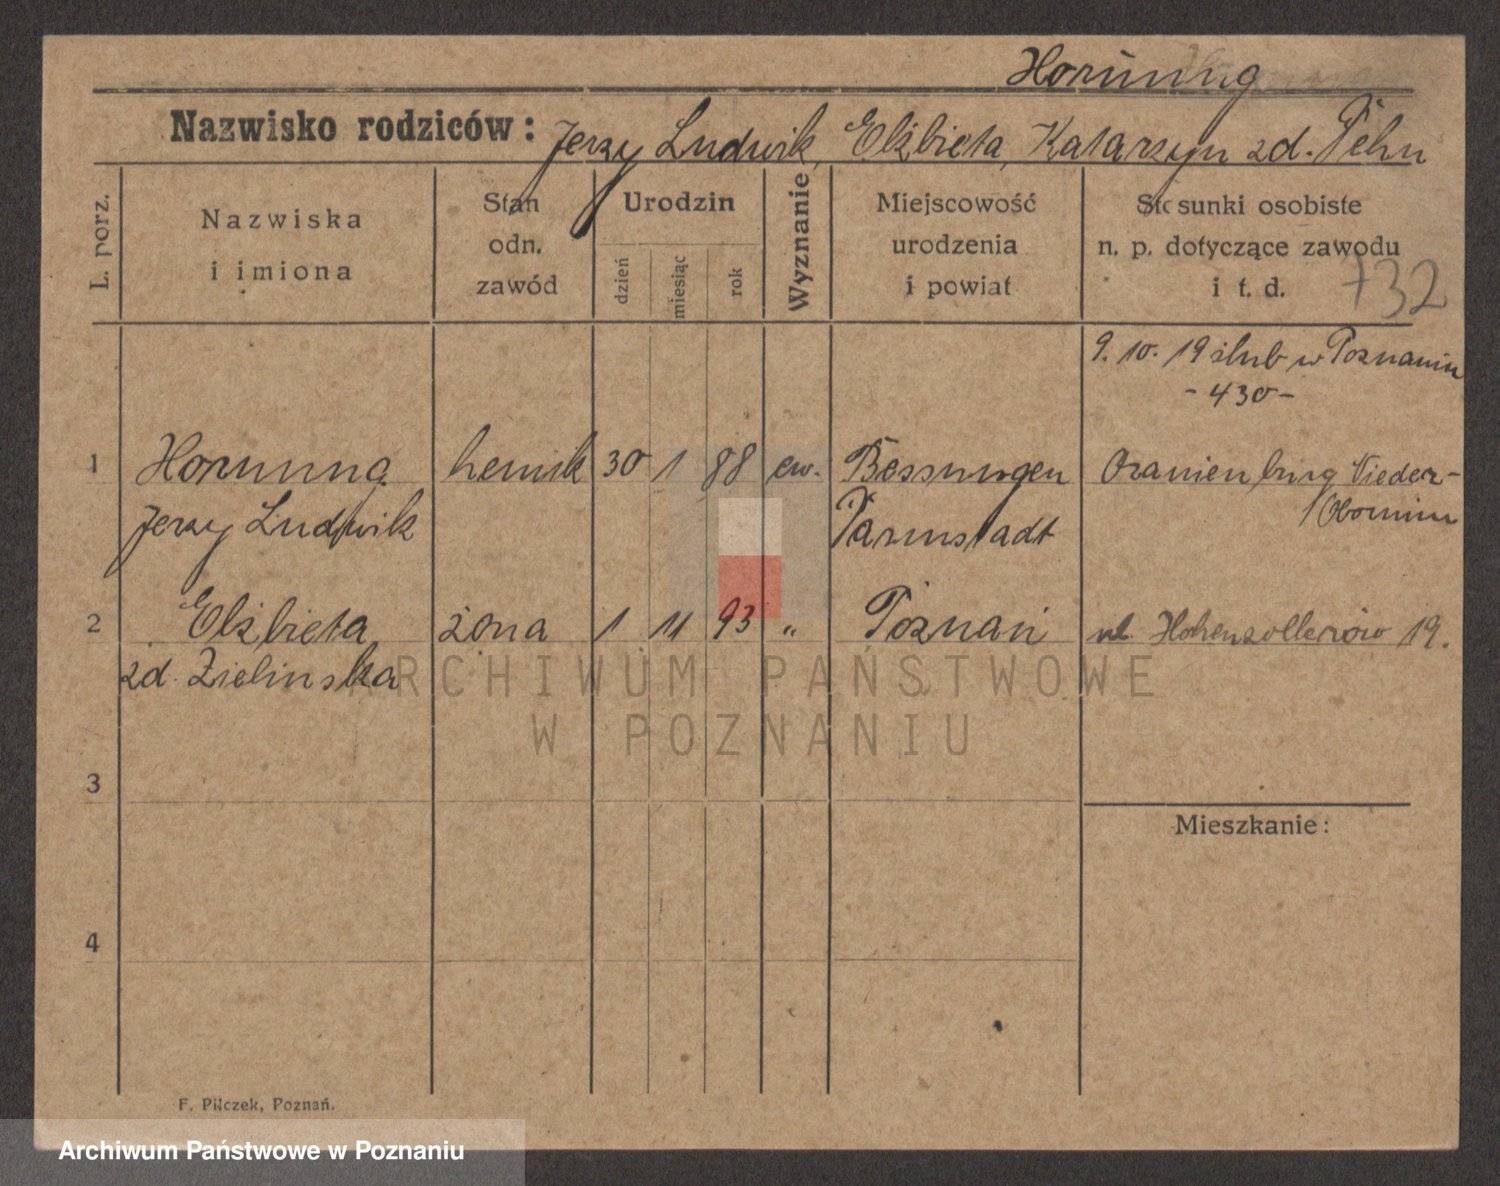 Hornung
Nazwisko rodziców: Jerzy Ludwik, Elżbieta, Katarzyn zd. Fehn
L. porz.
Nazwiska
i imiona
Stan
odn.
zawód
Urodzin
dzień
miesiąc
rok
Wyznanie
Miejscowość
urodzenia
i powiat
Stosunki osobiste
n. p. dotyczące zawodu
i t. d.
732
9. 10. 19 ślub w Poznaniu
- 430 -
1 Hornung hemik 30 1 88 ew. Bessungen Oranienburg Nieder-
Jerzy Ludwik Darmstadt
2 Elżbieta żona 1 11 93 „ Poznań ul. Hohenzollernów 19.
zd. Zielinska
ARCHIWUM PAŃSTWOWE
W POZNANIU
3
Mieszkanie:
4
F. Pilczek, Poznań.
Archiwum Państwowe w Poznaniu